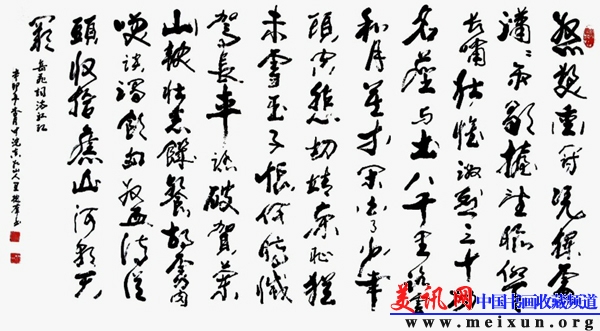 怒髮衝冠凭欄處
潇々雨歇擡望眼仰天
长嘯壮懷激烈三十功
名塵与土八千里路雲
和月莫等闲白了少年
頭空悲切靖康恥猶
未雪臣子恨何時滅
驾長車踏破賀蘭
山缺壮志饑餐胡虜肉
笑談渴飲匈奴血待從
頭收拾舊山河朝天
闕 岳飛詞滿江紅
辛卯年
美讯网 中国书画收藏频道
www.meixun.org